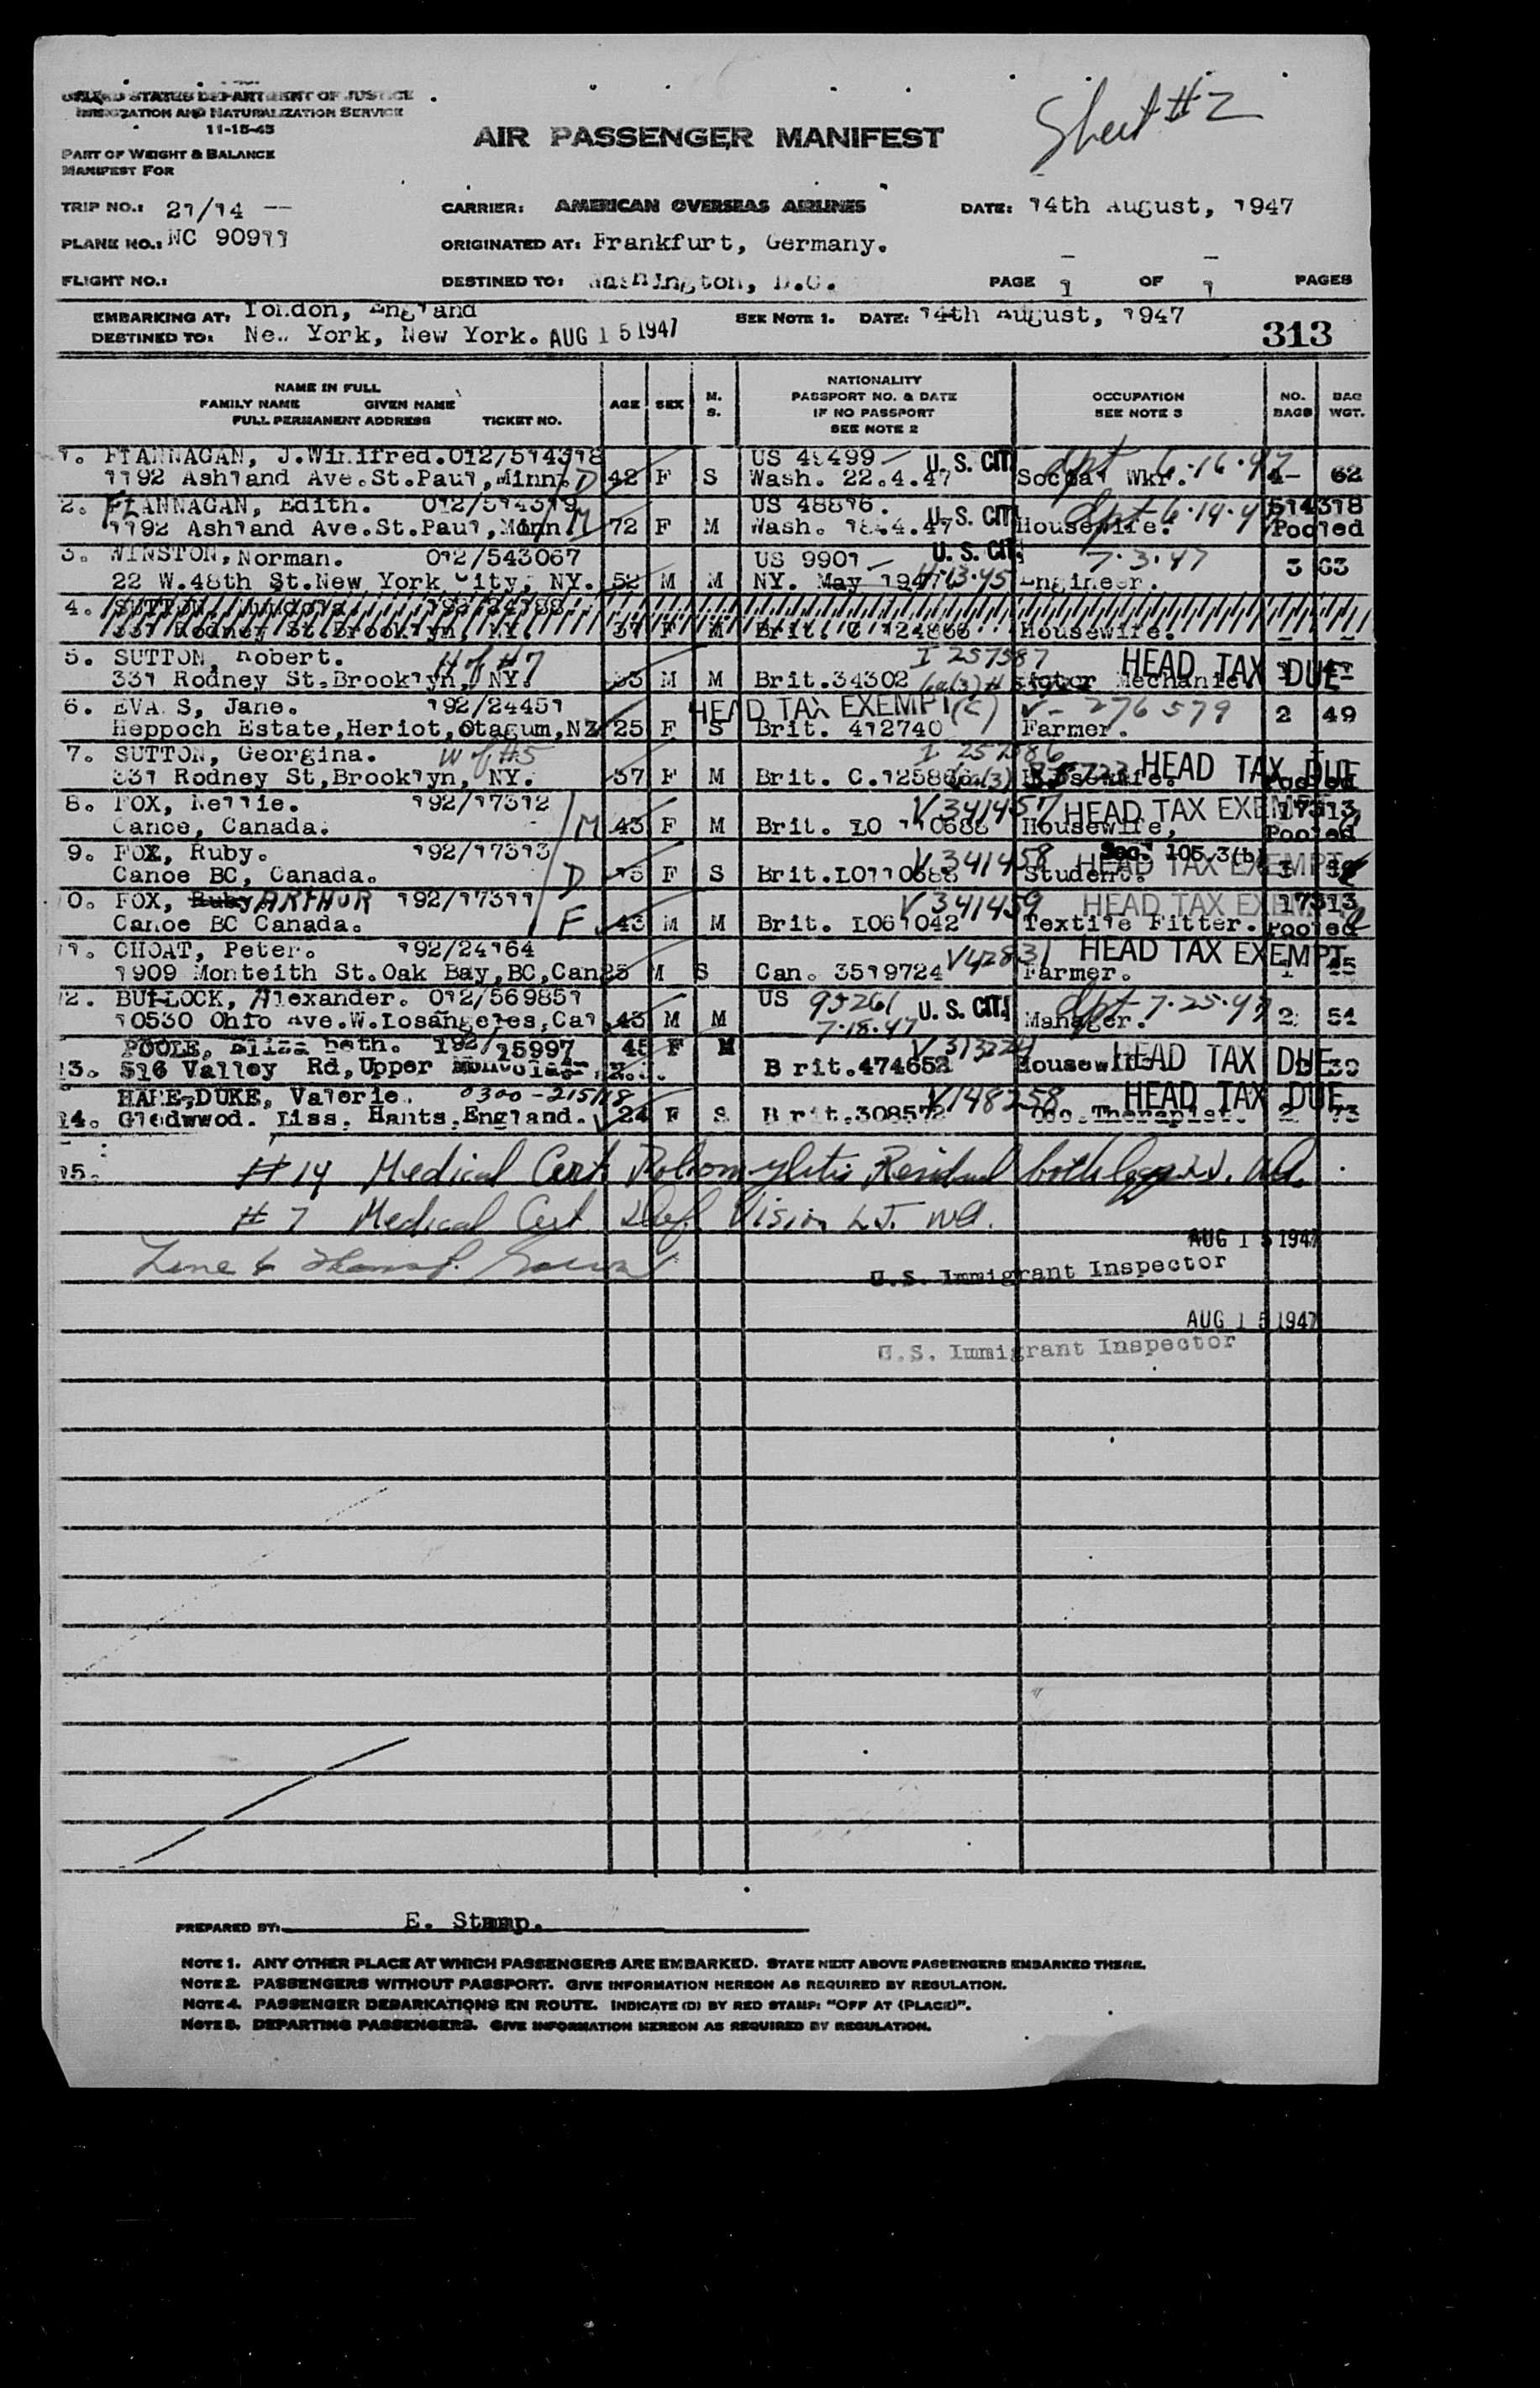 UNITED STATES DEPARTMENT OF JUSTICE
IMMIGRATION AND NATURALIZATION SERVICE
11-15-45
PART OF WEIGHT & BALANCE
MANIFEST FOR
AIR PASSENGER MANIFEST
Sheet #2
TRIP NO.: 21/14
CARRIER: AMERICAN OVERSEAS AIRLINES
DATE: 14th August, 1947
PLANE NO.: NC 90911
ORIGINATED AT: Frankfurt, Germany.
FLIGHT NO.:
DESTINED TO: Washington, D.C.
PAGE 1 OF 1 PAGES
EMBARKING AT: London, England
SEE NOTE 1. DATE: 14th August, 1947
DESTINED TO: New York, New York. AUG 15 1947
313
NAME IN FULL
FAMILY NAME GIVEN NAME
FULL PERMANENT ADDRESS TICKET NO.
AGE SEX M. S.
NATIONALITY
PASSPORT NO. & DATE
IF NO PASSPORT
SEE NOTE 2
OCCUPATION
SEE NOTE 3
NO. BAGS
BAG WGT.
1. FLANNAGAN, J.Winifred.012/514318 US 48499 U. S. CIT. dpt 6-16-47
1192 Ashland Ave.St.Paul,Minn. D 42 F S Wash. 22.4.47 Social Wkr. 4- 62
2. FLANNAGAN, Edith. 012/514319 US 48816. U. S. CIT. dpt 6-14-47 514318
1192 Ashland Ave.St.Paul,Minn M 72 F M Wash. 18.4.47 Housewife. Pooled
3. WINSTON, Norman. 012/543067 US 9901 U. S. CIT. 7-3-47
22 W.48th St.New York City, NY. 52 M M NY. May 1947 Engineer. 3 63
4. SUTTON, 192/24788
331 Rodney St.Brooklyn, NY. 37 F M Brit. C.124866 Housewife.
5. SUTTON, Robert. H of #7 I 257587 HEAD TAX DUE
331 Rodney St.Brooklyn, NY. M M Brit.34302 Motor Mechanic.
6. EVANS, Jane. 192/24451 HEAD TAX EXEMPT (C) V-276579
Heppoch Estate,Heriot,Otagum,NZ 25 F S Brit. 412740 Farmer. 2 49
7. SUTTON, Georgina. W of #5 I 257586 HEAD TAX DUE
331 Rodney St,Brooklyn, NY. 37 F M Brit. C.125866 Housewife. Pooled
8. FOX, Nellie. 192/17312 V 341457 HEAD TAX EXEMPT 17313
Canoe, Canada. M 43 F M Brit. LO 110688 Housewife, Pooled
9. FOX, Ruby. 192/17313 V 341458 Sec. 105.3(b) HEAD TAX EXEMPT
Canoe BC, Canada. D 15 F S Brit.LO110688 Student.
10. FOX, Ruby ARTHUR 192/17311 V 341459 HEAD TAX EXEMPT 17313
Canoe BC Canada. F 43 M M Brit. LO61042 Textile Fitter. Pooled
11. CHOAT, Peter. 192/24164 V42831 HEAD TAX EXEMPT
1909 Monteith St.Oak Bay,BC,Can 25 M S Can. 3519724 Farmer. 1 45
12. BULLOCK, Alexander. 012/569851 US 95261 U. S. CIT. dpt 7-25-47
10530 Ohio Ave.W.Losangeles,Cal 43 M M 7-18-47 Manager. 2 51
POOLE, Eliza beth. 192/15997 45 F M V 313224 HEAD TAX DUE
13. 516 Valley Rd,Upper Brit.474652 Housewife 30
HARE-DUKE, Valerie. 0300-215118 V148258 HEAD TAX DUE
14. Gledwwod. Liss, Hants,England. 24 F S Brit.308572 Occ.Therapist. 2 73
15. #14 Medical Cert. Poliomyelitis Residual both legs
#7 Medical Cert. Def. Vision
Line 6
AUG 15 1947
U.S. Immigrant Inspector
AUG 15 1947
U.S. Immigrant Inspector
PREPARED BY: E. Stamp.
NOTE 1. ANY OTHER PLACE AT WHICH PASSENGERS ARE EMBARKED. STATE NEXT ABOVE PASSENGERS EMBARKED THERE.
NOTE 2. PASSENGERS WITHOUT PASSPORT. GIVE INFORMATION HEREON AS REQUIRED BY REGULATION.
NOTE 4. PASSENGER DEBARKATIONS EN ROUTE. INDICATE (D) BY RED STAMP: "OFF AT (PLACE)".
NOTE 5. DEPARTING PASSENGERS. GIVE INFORMATION HEREON AS REQUIRED BY REGULATION.